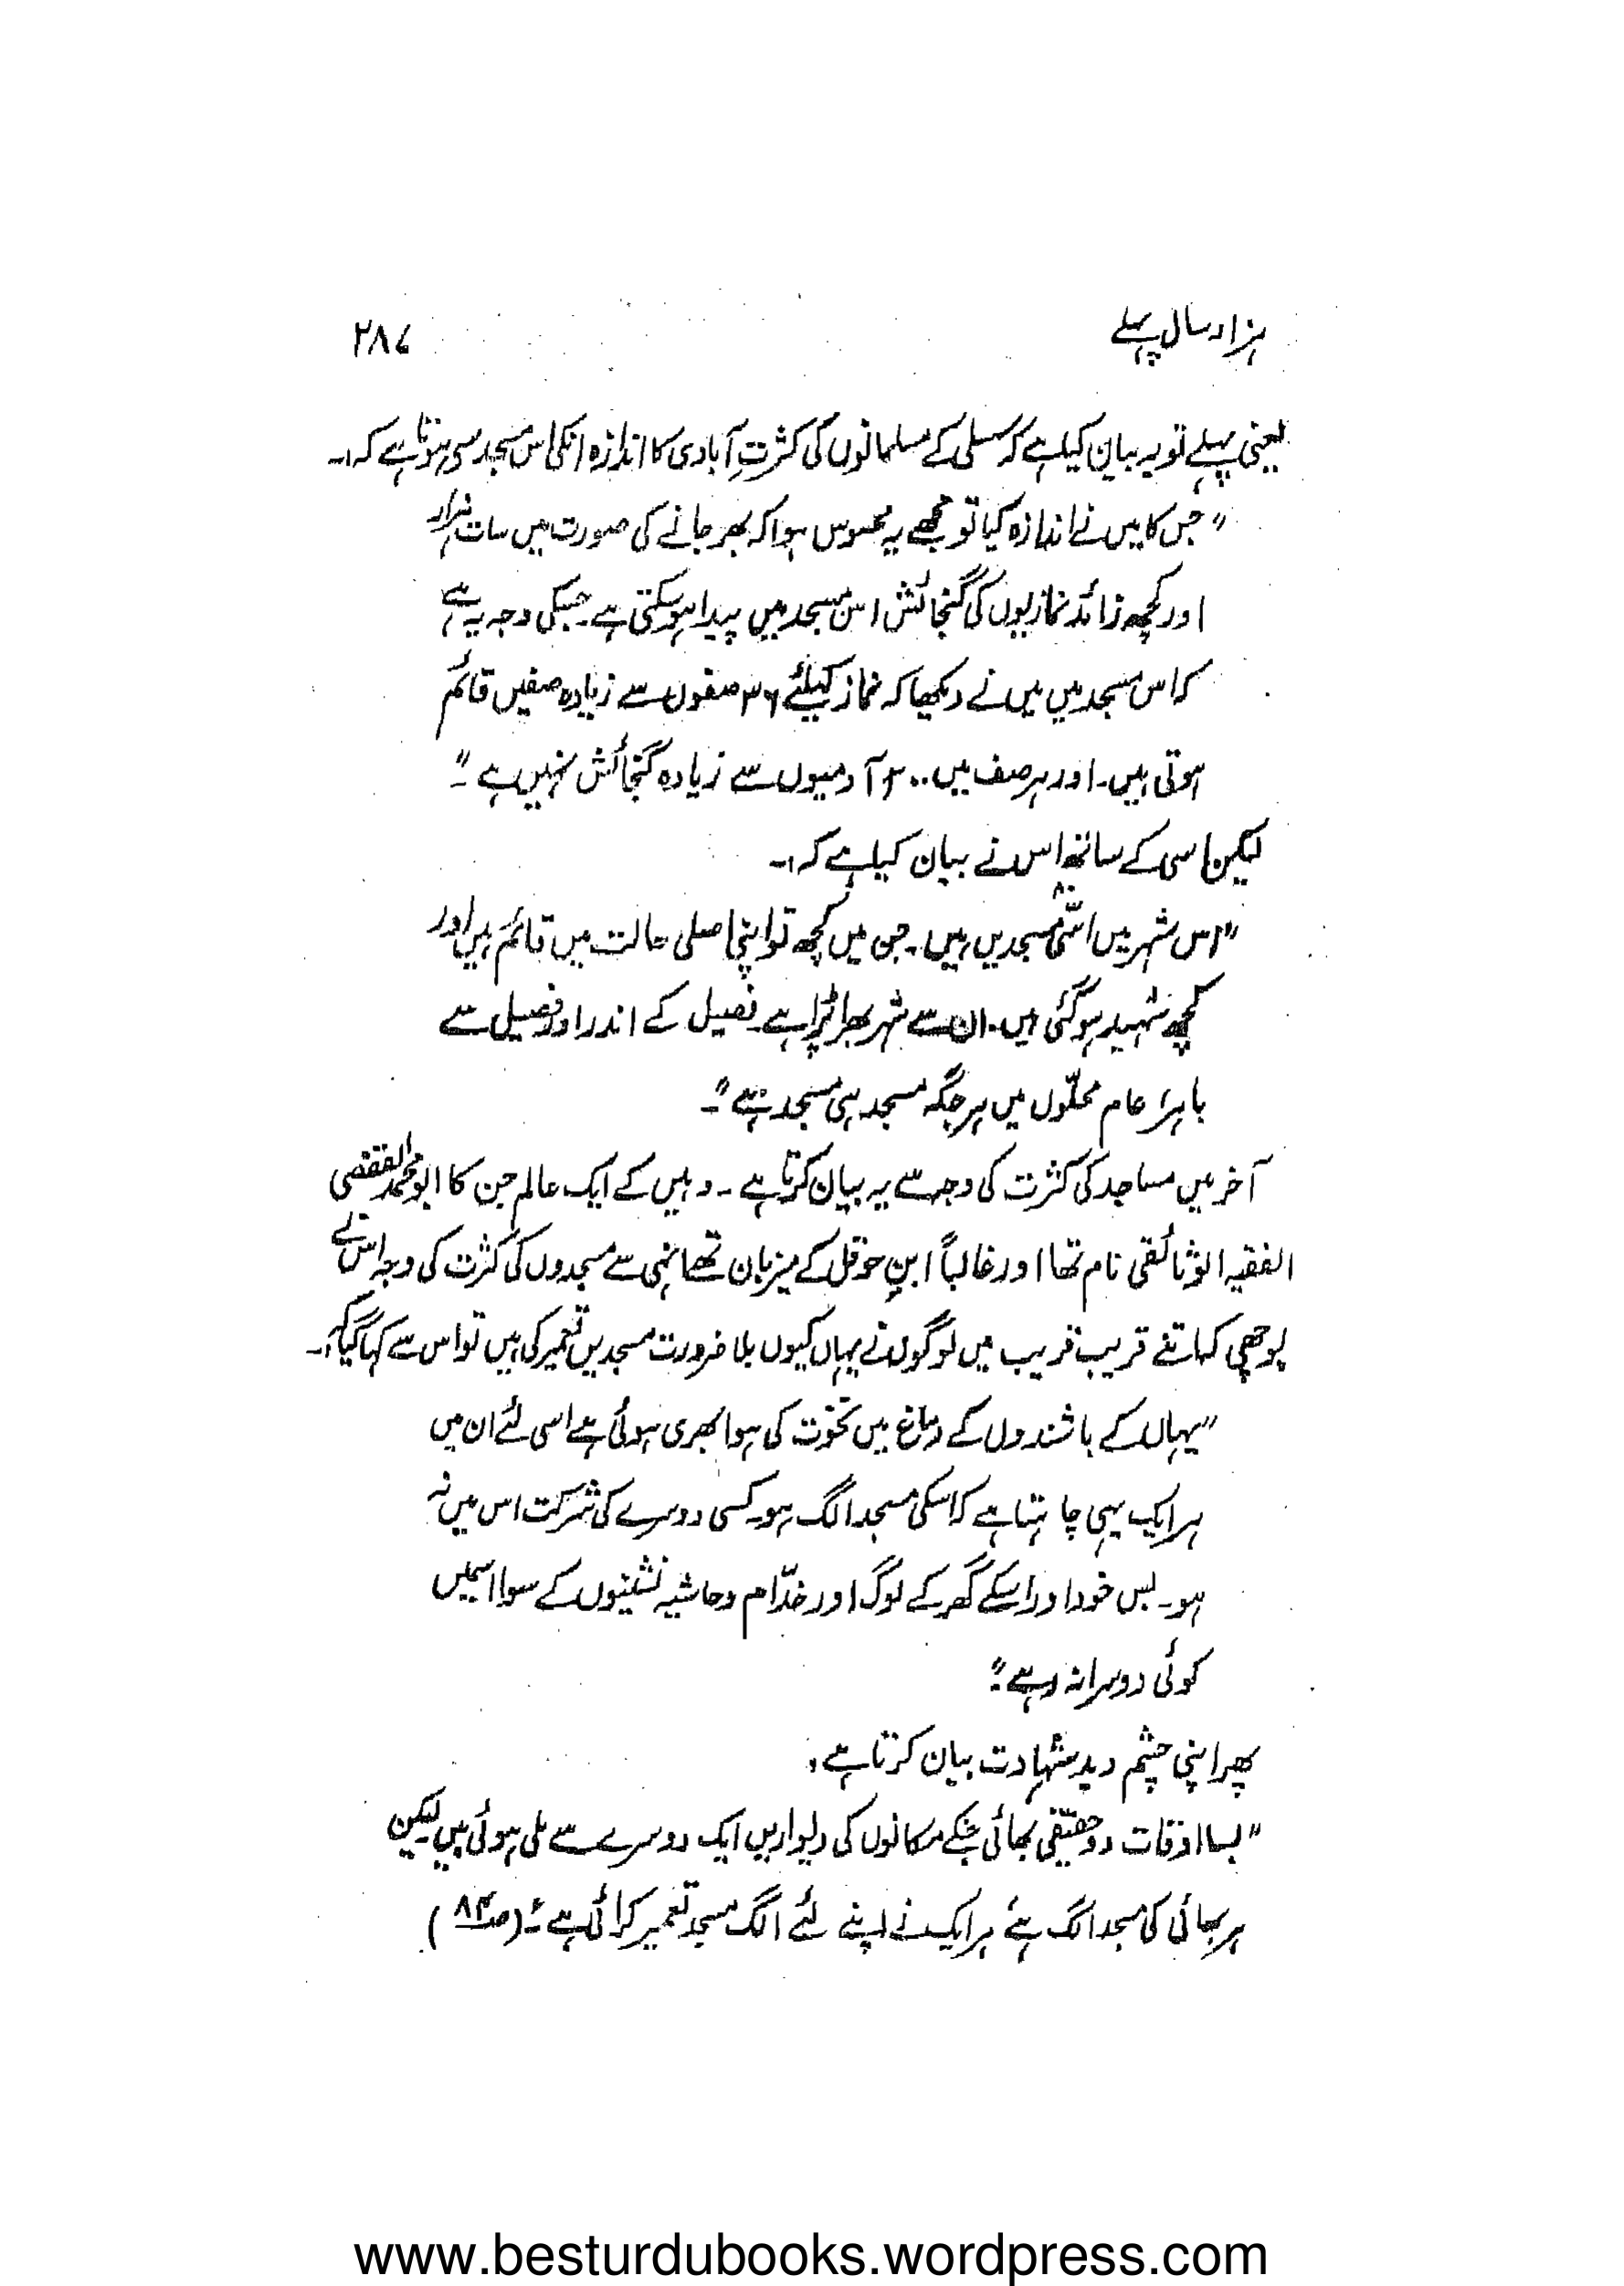 ہزار سال پہلے ۲۸۷
یعنی پہلے تو یہ بیان کیا ہے کہ سسلی کے مسلمانوں کی کثرتِ آبادی کا اندازہ انکی اس مسجد سے ہوتا ہے کہ:۔
"جس کا میں نے اندازہ کیا تو مجھے یہ محسوس ہوا کہ بھر جانے کی صورت میں سات ہزار
اور کچھ زائد نمازیوں کی گنجائش اس مسجد میں پیدا ہو سکتی ہے۔ جسکی وجہ یہ ہے
کہ اس مسجد میں میں نے دیکھا کہ نماز کیلئے ۳۶ صفوں سے زیادہ صفیں قائم
ہوتی ہیں۔ اور ہر صف میں ۲۰۰ آدمیوں سے زیادہ گنجائش نہیں ہے"۔
لیکن اسی کے ساتھ اس نے بیان کیا ہے کہ:۔
"اس شہر میں اسّی ۸۰ مسجدیں ہیں۔ جن میں کچھ تو اپنی اصلی حالت میں قائم ہیں اور
کچھ شہید ہو گئی ہیں۔ ان سے شہر بھرا پڑا ہے۔ فصیل کے اندر اور فصیل سے
باہر عام محلّوں میں ہر جگہ مسجد ہی مسجد ہے"۔
آخر میں مساجد کی کثرت کی وجہ سے یہ بیان کرتا ہے۔ وہیں کے ایک عالم جن کا ابو محمد القفصی
الفقیہ الوثائقی نام تھا اور غالباً ابنِ حوقل کے میزبان تھے انہی سے مسجدوں کی کثرت کی وجہ اس نے
پوچھی کہ اتنے قریب قریب میں لوگوں نے یہاں کیوں بلا ضرورت مسجدیں تعمیر کی ہیں تو اس سے کہا گیا کہ:۔
"یہاں کے باشندوں کے دماغ میں نخوت کی ہوا بھری ہوئی ہے اسی لئے ان میں
ہر ایک یہی چاہتا ہے کہ اسکی مسجد الگ ہو۔ کسی دوسرے کی شرکت اس میں نہ
ہو۔ بس خود اور اسکے گھر کے لوگ اور خدّام وحاشیہ نشینوں کے سوا اسمیں
کوئی دوسرا نہ رہے"۔
پھر اپنی چشم دید شہادت بیان کرتا ہے،
"بسا اوقات دو حقیقی بھائی جنکے مکانوں کی دیواریں ایک دوسرے سے ملی ہوئی ہیں۔ لیکن
ہر بھائی کی مسجد الگ ہے ہر ایک نے اپنے لئے الگ مسجد تعمیر کرائی ہے"۔ (صـ۸۴)
www.besturdubooks.wordpress.com